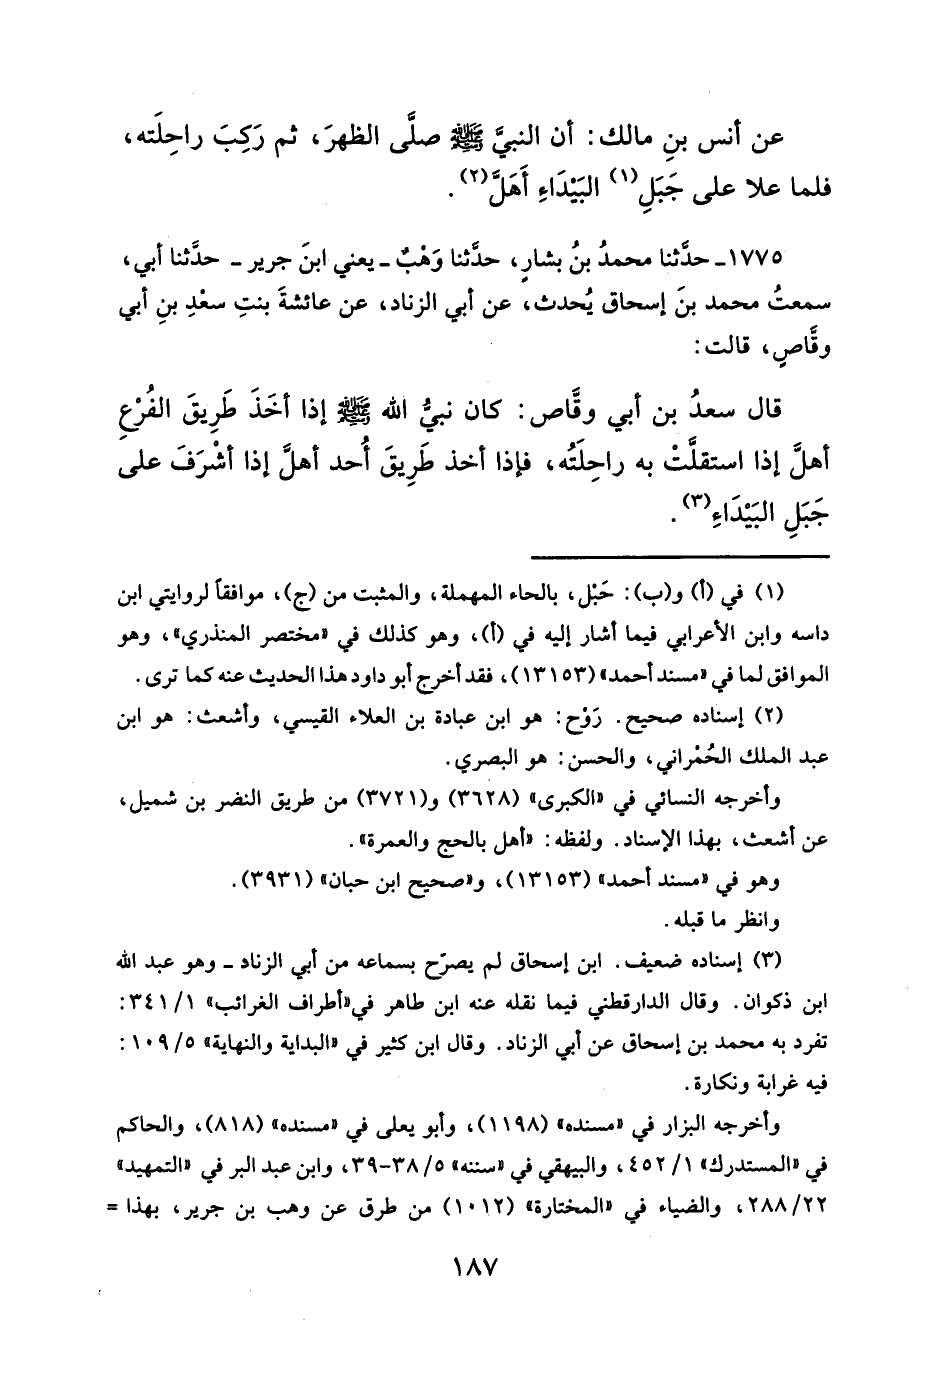 عن أنس بنِ مالك: أن النبيَّ ﷺ صلَّى الظهرَ، ثم رَكِبَ راحِلَته،
فلما علا على جَبَلِ(١) البَيْدَاءِ أَهَلَّ(٢).
١٧٧٥ـ حدَّثنا محمدُ بنُ بشارٍ، حدَّثنا وَهْبٌ ـ يعني ابنَ جرير ـ حدَّثنا أبي،
سمعتُ محمد بنَ إسحاق يُحدث، عن أبي الزناد، عن عائشةَ بنتِ سعْدِ بنِ أبي
وقَّاصٍ، قالت:
قال سعدُ بن أبي وقَّاص: كان نبيُّ الله ﷺ إذا أخَذَ طَرِيقَ الفُرْعِ
أهلَّ إذا استقلَّتْ به راحِلَتُه، فإذا أخذ طَرِيقَ أُحد أهلَّ إذا أشْرَفَ على
جَبَلِ البَيْدَاءِ(٣).
(١) في (أ) و(ب): حَبْل، بالحاء المهملة، والمثبت من (ج)، موافقاً لروايتي ابن
داسه وابن الأعرابي فيما أشار إليه في (أ)، وهو كذلك في «مختصر المنذري»، وهو
الموافق لما في «مسند أحمد» (١٣١٥٣)، فقد أخرج أبو داود هذا الحديث عنه كما ترى.
(٢) إسناده صحيح. رَوْح: هو ابن عبادة بن العلاء القيسي، وأشعث: هو ابن
عبد الملك الحُمْراني، والحسن: هو البصري.
وأخرجه النسائي في «الكبرى» (٣٦٢٨) و(٣٧٢١) من طريق النضر بن شميل،
عن أشعث، بهذا الإسناد. ولفظه: «أهل بالحج والعمرة».
وهو في «مسند أحمد» (١٣١٥٣)، و«صحيح ابن حبان» (٣٩٣١).
وانظر ما قبله.
(٣) إسناده ضعيف. ابن إسحاق لم يصرّح بسماعه من أبي الزناد ـ وهو عبد الله
ابن ذكوان. وقال الدارقطني فيما نقله عنه ابن طاهر في«أطراف الغرائب» ٣٤١/١:
تفرد به محمد بن إسحاق عن أبي الزناد. وقال ابن كثير في «البداية والنهاية» ١٠٩/٥:
فيه غرابة ونكارة.
وأخرجه البزار في «مسنده» (١١٩٨)، وأبو يعلى في «مسنده» (٨١٨)، والحاكم
في «المستدرك» ٤٥٢/١، والبيهقي في «سننه» ٣٨/٥-٣٩، وابن عبد البر في «التمهيد»
٢٨٨/٢٢، والضياء في «المختارة» (١٠١٢) من طرق عن وهب بن جرير، بهذا =
١٨٧